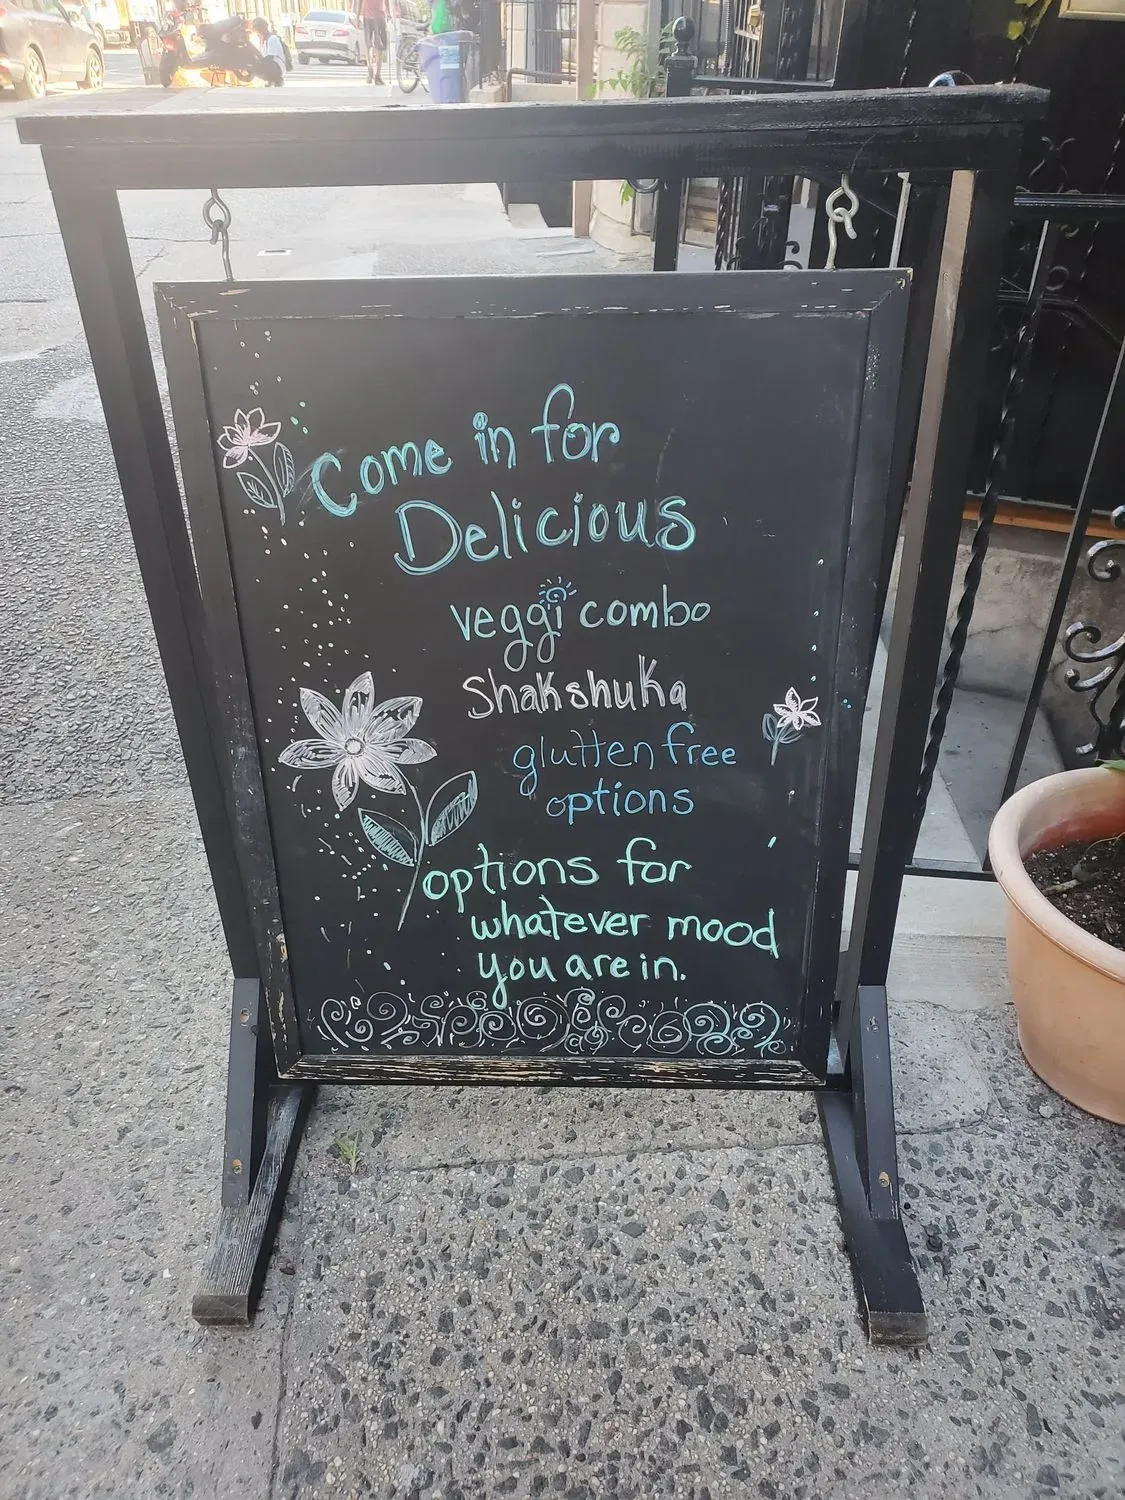 Come in for
Delicious
veggi combo
Shakshuka
glutten free
options
options for
whatever mood
you are in.